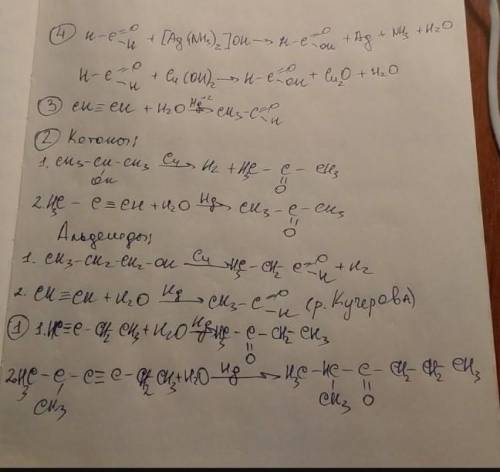 ④ H-C(=O)H + [Ag(NH₃)₂]OH → H-C(=O)OH + Ag + NH₃ + H₂O
H-C(=O)H + Cu(OH)₂ → H-C(=O)OH + Cu₂O + H₂O
③ CH≡CH + H₂O Hg⁺² → CH₃-C(=O)H
② Кетоны:
1. CH₃-CH(OH)-CH₃ Cu → H₂ + H₃C-C(=O)-CH₃
2. H₃C-C≡CH + H₂O Hg → CH₃-C(=O)-CH₃
Альдегиды:
1. CH₃-CH₂-CH₂-OH Cu → H₃C-CH₂ C(=O)H + H₂
2. CH≡CH + H₂O Hg → CH₃-C(=O)H (р. Кучерова)
① 1. HC≡C-CH₂CH₃ + H₂O Hg → H₃C-C(=O)-CH₂CH₃
2. H₃C-C(CH₃)-C≡C-CH₂CH₃ + H₂O Hg → H₃C-HC(CH₃)-C(=O)-CH₂-CH₂ CH₃